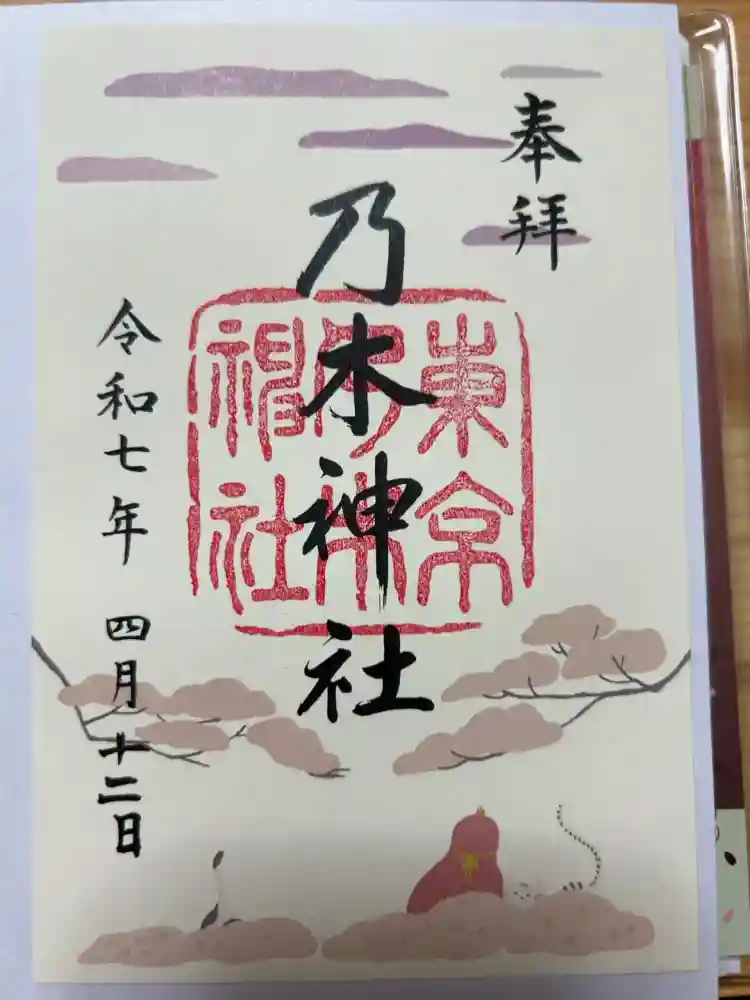 奉拝
乃木神社
令和七年 四月十二日
東京
乃木
神社